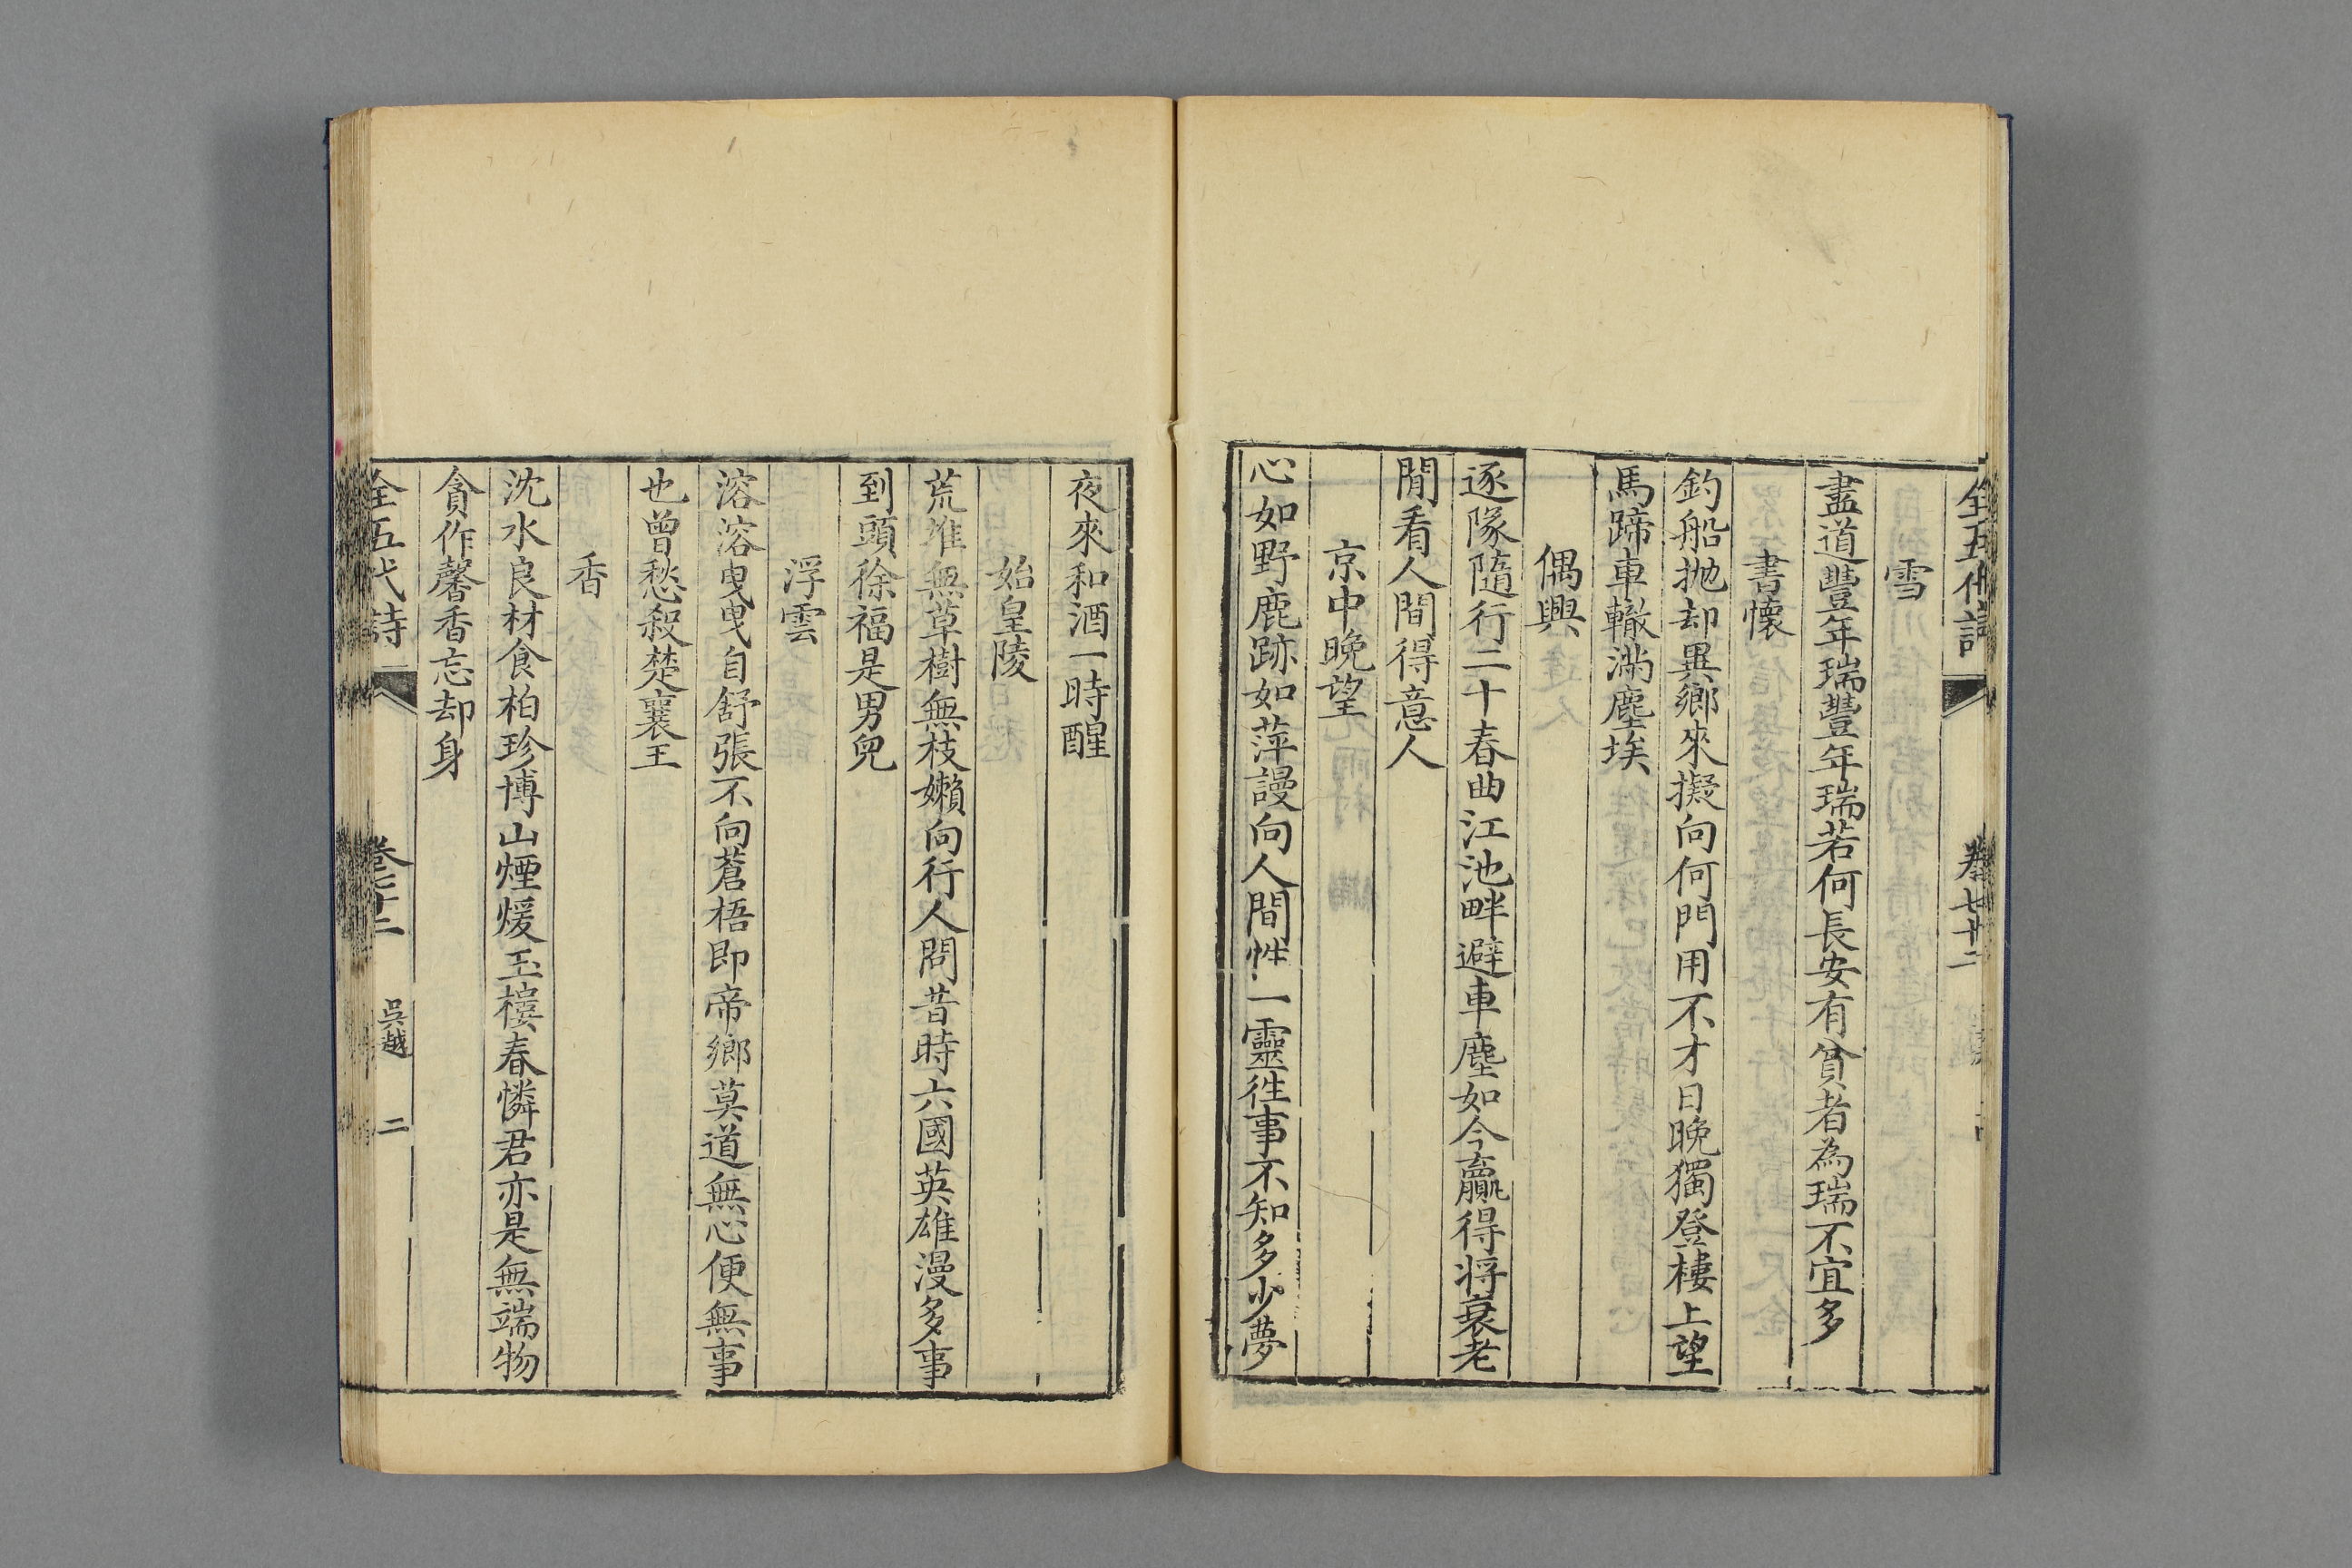 全五代詩 卷七十二
雪
盡道豐年瑞豐年瑞若何長安有貧者為瑞不宜多
書懷
釣船抛却異鄉來擬向何門用不才日晚獨登樓上望
馬蹄車轍滿塵埃
偶興
逐隊隨行二十春曲江池畔避車塵如今贏得将衰老
閒看人間得意人
京中晚望
心如野鹿跡如萍謾向人間性一靈徃事不知多少夢
夜來和酒一時醒
始皇陵
荒堆無草樹無枝嬾向行人問昔時六國英雄漫多事
到頭徐福是男兒
浮雲
溶溶曳曳自舒張不向蒼梧即帝鄉莫道無心便無事
也曾愁殺楚襄王
香
沈水良材食柏珍博山煙煖玉樓春憐君亦是無端物
貪作馨香忘却身
全五代詩 卷七十二 吳越 二